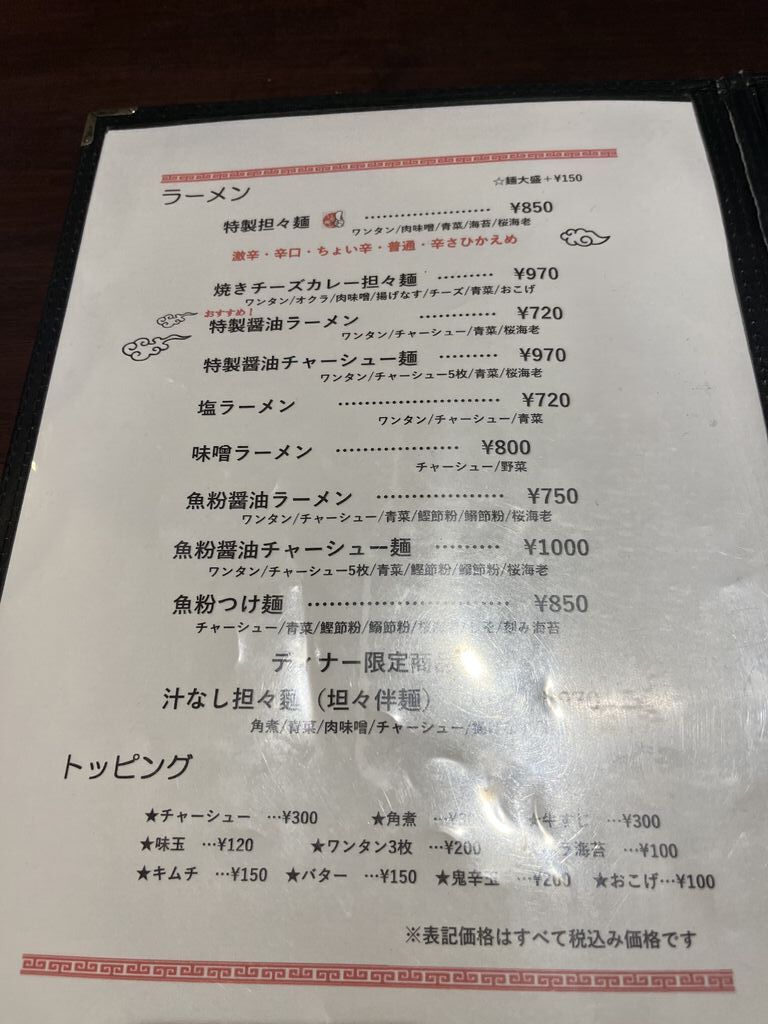 ラーメン
☆麺大盛＋¥150
特製担々麺 ····················· ¥850
ワンタン/肉味噌/青菜/海苔/桜海老
激辛・辛口・ちょい辛・普通・辛さひかえめ
焼きチーズカレー担々麺 ········· ¥970
ワンタン/オクラ/肉味噌/揚げなす/チーズ/青菜/おこげ
おすすめ！
特製醤油ラーメン ············ ¥720
ワンタン/チャーシュー/青菜/桜海老
特製醤油チャーシュー麺 ········· ¥970
ワンタン/チャーシュー5枚/青菜/桜海老
塩ラーメン ························· ¥720
ワンタン/チャーシュー/青菜
味噌ラーメン ··················· ¥800
チャーシュー/野菜
魚粉醤油ラーメン ··················· ¥750
ワンタン/チャーシュー/青菜/鰹節粉/鰯節粉/桜海老
魚粉醤油チャーシュー麺 ········· ¥1000
ワンタン/チャーシュー5枚/青菜/鰹節粉/鰯節粉/桜海老
魚粉つけ麺 ······························ ¥850
チャーシュー/青菜/鰹節粉/鰯節粉/刻み海苔
ディナー限定商品
汁なし担々麺（坦々伴麺）
角煮/青菜/肉味噌/チャーシュー/
トッピング
★チャーシュー …¥300 ★角煮 …¥300
★味玉 …¥120 ★ワンタン3枚 …¥200 海苔 …¥100
★キムチ …¥150 ★バター …¥150 ★鬼辛玉 …¥200 ★おこげ…¥100
※表記価格はすべて税込み価格です